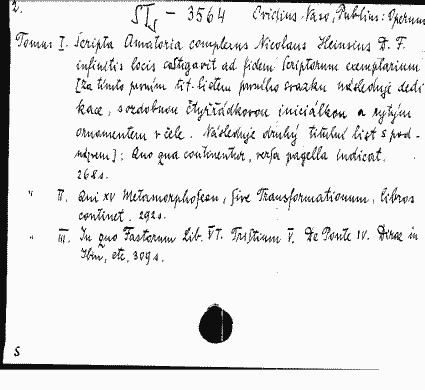 2.
SI - 3564 Ovidius Naso, Publius: Operum
Tomus I. Scripta Amatoria complexus Nicolaus Heinsius D. F.
infinitis locis castigavit ad fidem scriptorum exemplarium
[za tímto prvním tit. listem prvního svazku následuje dedi
kace, s ozdobnou čtyřřádkovou iniciálkou a rytým
ornamentem v čele. Následuje druhý titulní list s pod-
nápem]: Quo qua continentur, versa pagella indicat.
268 s.
" II. Qui XV Metamorphoseon, sive Transformationum, libros
continet. 292 s.
" III. In quo Fastorum Lib. VI. Tristium V. De Ponto IV. Dirae in
Ibin, etc, 309 s.
S